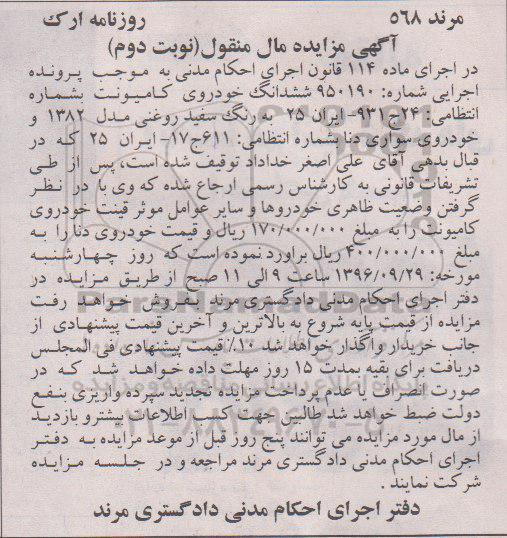 مرند ۵۶۸ روزنامه ارک
آگهی مزایده مال منقول(نوبت دوم)
در اجرای ماده ۱۱۴ قانون اجرای احکام مدنی به موجب پرونده
اجرایی شماره: ۹۵۰۱۹۰ ششدانگ خودروی کامیونت بشماره
انتظامی: ۲۴ج۹۳۱- ایران ۲۵ به رنگ سفید روغنی مدل ۱۳۸۲ و
خودروی سواری دنا بشماره انتظامی: ۶۱۱ج۱۷- ایران ۲۵ که در
قبال بدهی آقای علی اصغر خداداد توقیف شده است، پس از طی
تشریفات قانونی به کارشناس رسمی ارجاع شده که وی با در نظر
گرفتن وضعیت ظاهری خودروها و سایر عوامل موثر قیمت خودروی
کامیونت را به مبلغ ۱۷۰/۰۰۰/۰۰۰ ریال و قیمت خودروی دنا را به
مبلغ ۴۰۰/۰۰۰/۰۰۰ ریال براورد نموده است که روز چهارشنبه
مورخه: ۱۳۹۶/۰۹/۲۹ ساعت ۹ الی ۱۱ صبح از طریق مزایده در
دفتر اجرای احکام مدنی دادگستری مرند بفروش خواهد رفت
مزایده از قیمت پایه شروع به بالاترین و آخرین قیمت پیشنهادی از
جانب خریدار واگذار خواهد شد ۱۰٪ قیمت پیشنهادی فی المجلس
دریافت برای بقیه بمدت ۱۵ روز مهلت داده خواهد شد که در
صورت انصراف یا عدم پرداخت مزایده تجدید سپرده واریزی بنفع
دولت ضبط خواهد شد طالبین جهت کسب اطلاعات بیشترو بازدید
از مال مورد مزایده می توانند پنج روز قبل از موعد مزایده به دفتر
اجرای احکام مدنی دادگستری مرند مراجعه و در جلسه مزایده
شرکت نمایند .
دفتر اجرای احکام مدنی دادگستری مرند
ParsNamadData
پایگاه اطلاع رسانی مناقصه و مزایده
۰۲۱-۸۸۳۴۹۶۷۰-۵